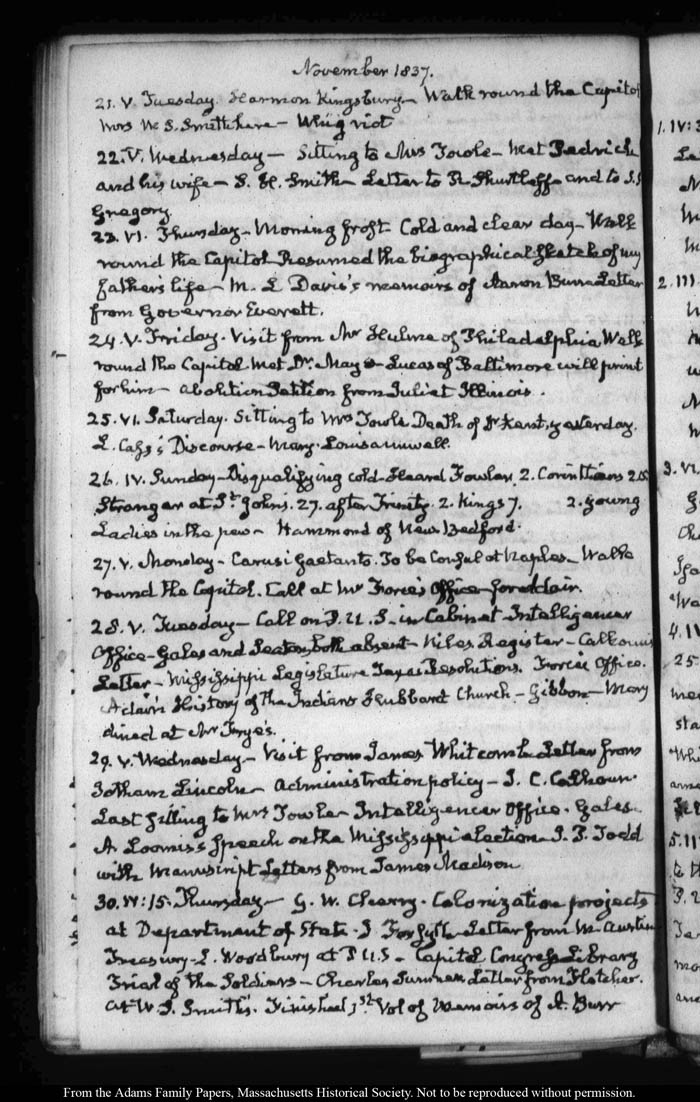 November 1837.
21. V. Tuesday. Harmon Kingsbury - Walk round the Capitol
Mrs W. S. Smith here - Whig riot
22. V. Wednesday - Sitting to Mrs Towle - Met Pedrick
and his wife - S. H. Smith - Letter to R. Shurtleff - and to
Gregory.
23. VI. Thursday - Morning frost Cold and clear day - Walk
round the Capitol - Resumed the biographical sketch of my
father's life - M. L. Davis's memoirs of Aaron Burr - Letter
from Governor Everett.
24. V. Friday. Visit from Mr Hulme of Philadelphia Walk
round the Capitol Met Dr. May - Lucas of Baltimore will print
for him - abolition Petition from Juliet Illinois.
25. VI. Saturday. Sitting to Mrs Towle Death of Dr yesterday.
L. Cass's Discourse - Mary. Louisa unwell.
26. IV. Sunday - Disqualifying cold - Heard Fowler 2. Corinthians
Stranger at St. Johns. 27. after Trinity. 2. Kings 7. 2. young
Ladies in the pew - Hammond of New Bedford.
27. V. Monday - Carusi Gaetano. To be Consul at Naples - Walk
round the Capitol. Call at Mr Force's Office for Adair.
28. V. Tuesday - Call on P. U. S. in Cabinet - Intelligencer
Office - Gales and Seaton, both absent - Niles Register - Calhoun's
Letter - Mississippi Legislature Texas Resolutions. Force's Office.
Adair's History of the Indians Hubbard Church - Gibbon - Mary
dined at Mr Frye's.
29. V. Wednesday - Visit from James Whitcomb Letter from
Jotham Lincoln - Administration policy - J. C. Calhoun.
Last sitting to Mrs Towle - Intelligencer Office. Gales.
A Loomis's speech on the Mississippi election - J. P. Todd
with Manuscript Letters from James Madison
30. IV:15. Thursday - G. W. Cherry. Colonization projects
at Department of State - J. Forsyth - Letter from M. Austin
Treasury - L. Woodbury at P U.S - Capitol Congress Library
Trial of the Soldiers - Charles Sumner Letter from Fletcher.
At W. S. Smith's. Finished 1st. Vol of Memoirs of A. Burr
From the Adams Family Papers, Massachusetts Historical Society. Not to be reproduced without permission.